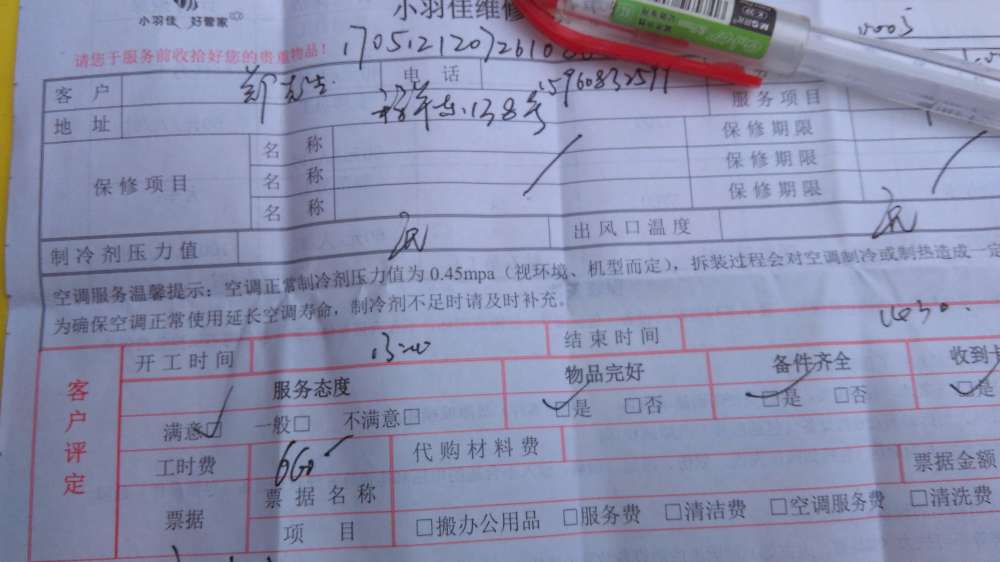 小羽佳 好管家
小羽佳维修
请您于服务前收拾好您的贵重物品!
客户 郑先生 电话 15960832597
地址 138号 服务项目
保修项目 名称 保修期限
名称 保修期限
名称 保修期限
制冷剂压力值 出风口温度
空调服务温馨提示:空调正常制冷剂压力值为0.45mpa(视环境、机型而定),拆装过程会对空调制冷或制热造成一定
为确保空调正常使用延长空调寿命,制冷剂不足时请及时补充。
客户评定
开工时间 13:00 结束时间
服务态度 物品完好 备件齐全 收到卡
满意□ 一般□ 不满意□ □是 □否 □是 □否 □是
工时费 660 代购材料费 票据金额
票据 票据名称
项目 □搬办公用品 □服务费 □清洁费 □空调服务费 □清洗费